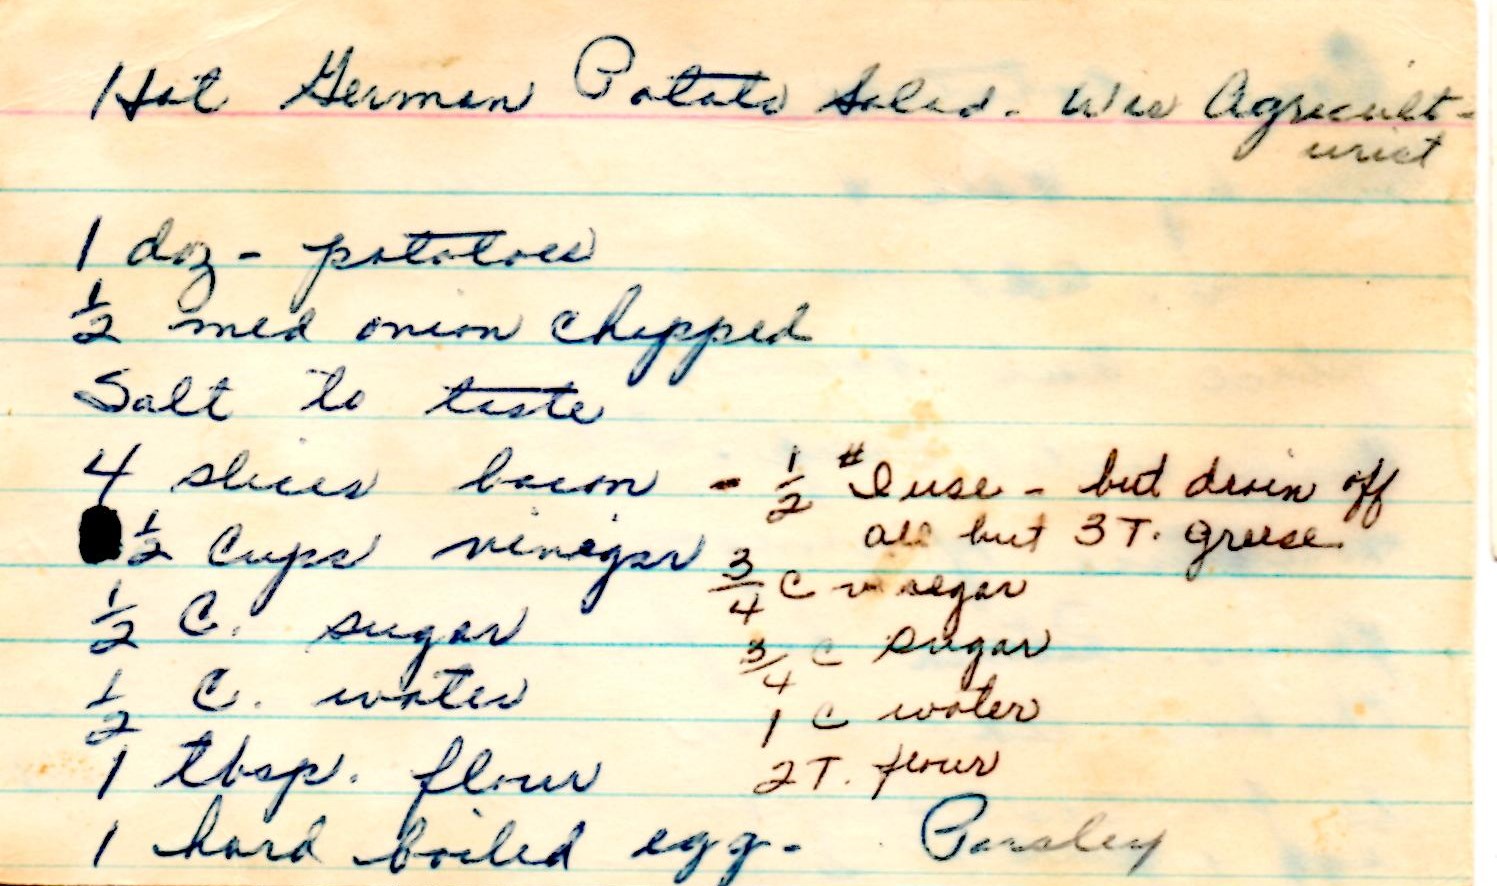 Hot German Potato Salad. Wis Agricult-
urist
1 doz - potatoes
1/2 med onion chopped
Salt to taste
4 slices bacon - 1/2 # I use - but drain off
all but 3 T. grease.
1/2 Cups vinegar 3/4 C vinegar
1/2 C. sugar 3/4 C sugar
1/2 C. water 1 C water
1 tbsp. flour 2 T. flour
1 hard boiled egg - Parsley